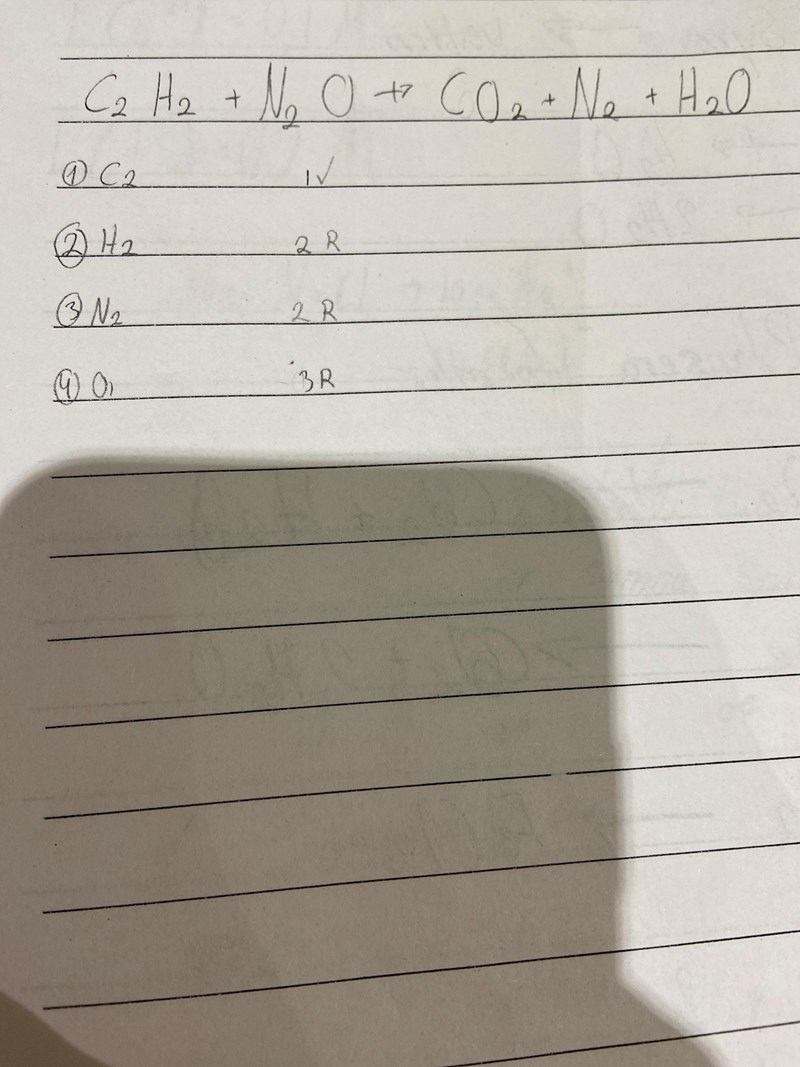 C₂ H₂ + N₂ O → CO₂ + N₂ + H₂O
① C₂ 1✓
② H₂ 2 R
③ N₂ 2 R
④ O₁ 3R